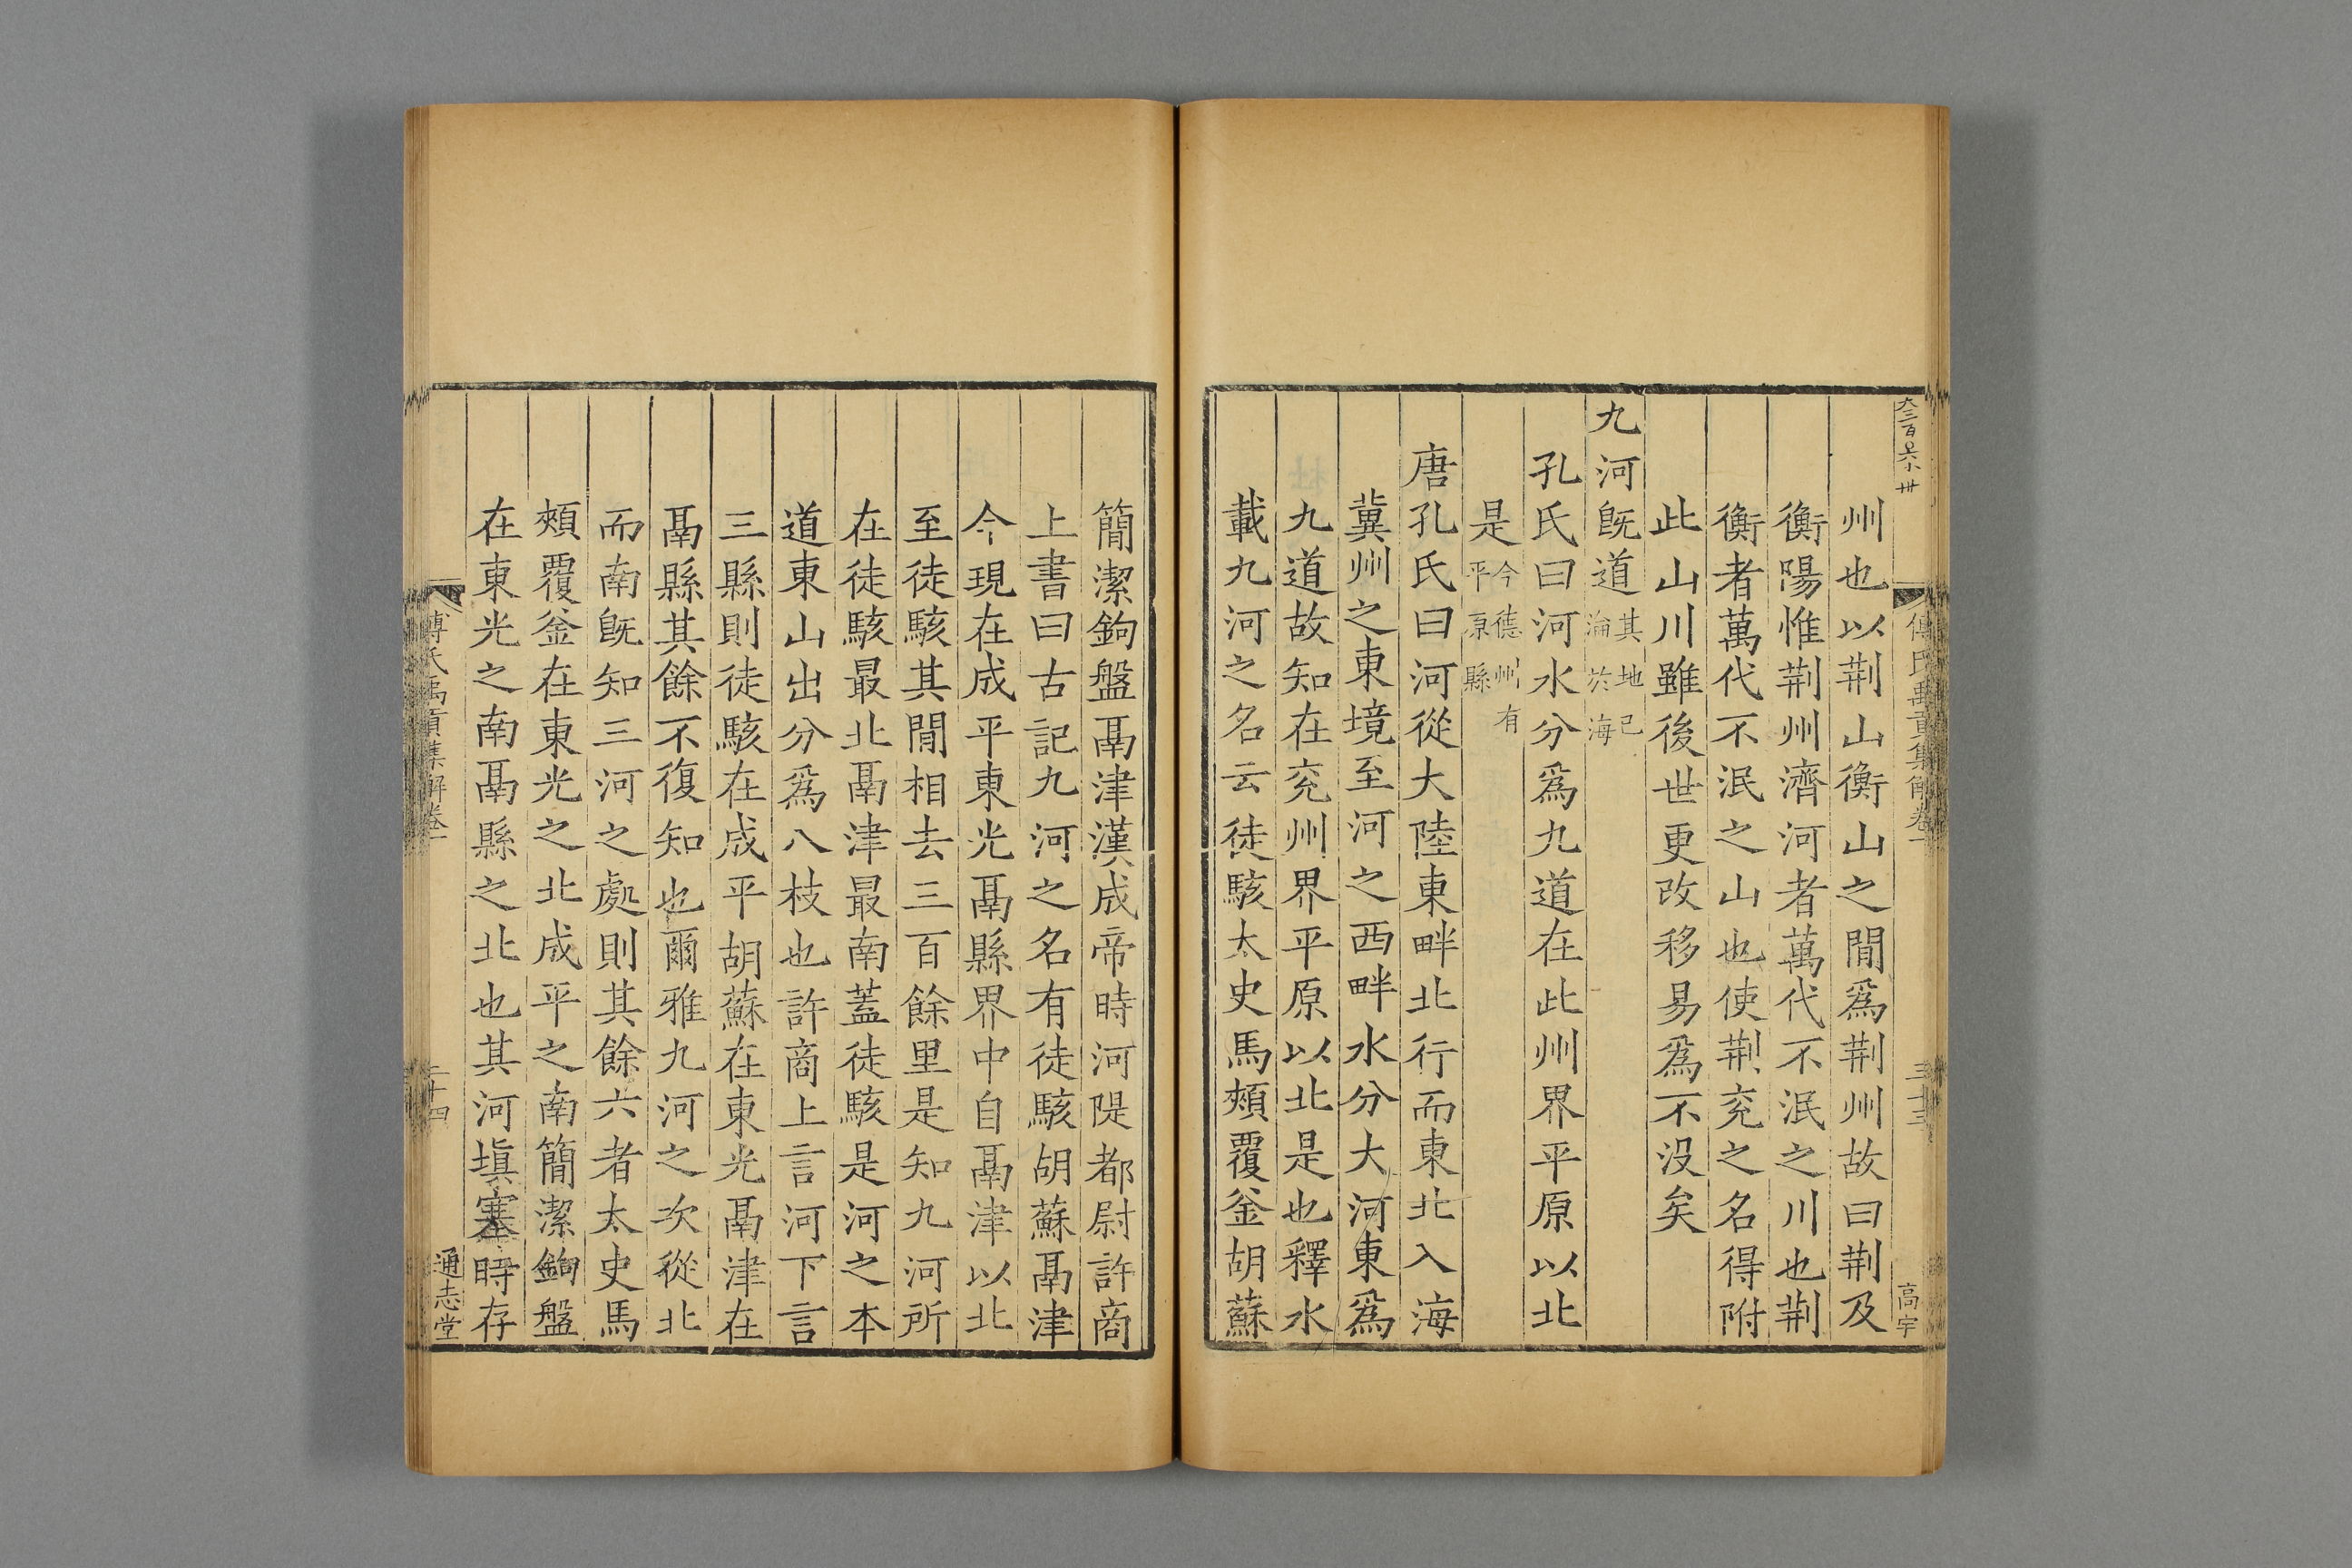 州也以荆山衡山之閒爲荆州故曰荆及
衡陽惟荆州濟河者萬代不泯之川也荆
衡者萬代不泯之山也使荆兖之名得附
此山川雖後世更改移易爲不没矣
九河旣道其地已淪於海
孔氏曰河水分爲九道在此州界平原以北
是今德州有平原縣
唐孔氏曰河從大陸東畔北行而東北入海
冀州之東境至河之西畔水分大河東爲
九道故知在兖州界平原以北是也釋水
載九河之名云徒駭太史馬頰覆釜胡蘇
簡潔鉤盤鬲津漢成帝時河隄都尉許商
上書曰古記九河之名有徒駭胡蘇鬲津
今現在成平東光鬲縣界中自鬲津以北
至徒駭其閒相去三百餘里是知九河所
在徒駭最北鬲津最南蓋徒駭是河之本
道東山出分爲八枝也許商上言河下言
三縣則徒駭在成平胡蘇在東光鬲津在
鬲縣其餘不復知也爾雅九河之次從北
而南旣知三河之處則其餘六者太史馬
頰覆釜在東光之北成平之南簡潔鉤盤
在東光之南鬲縣之北也其河塡塞時存
傅氏禹貢集解卷一
三十三
高宇
傅氏禹貢集解卷一
三十四
通志堂